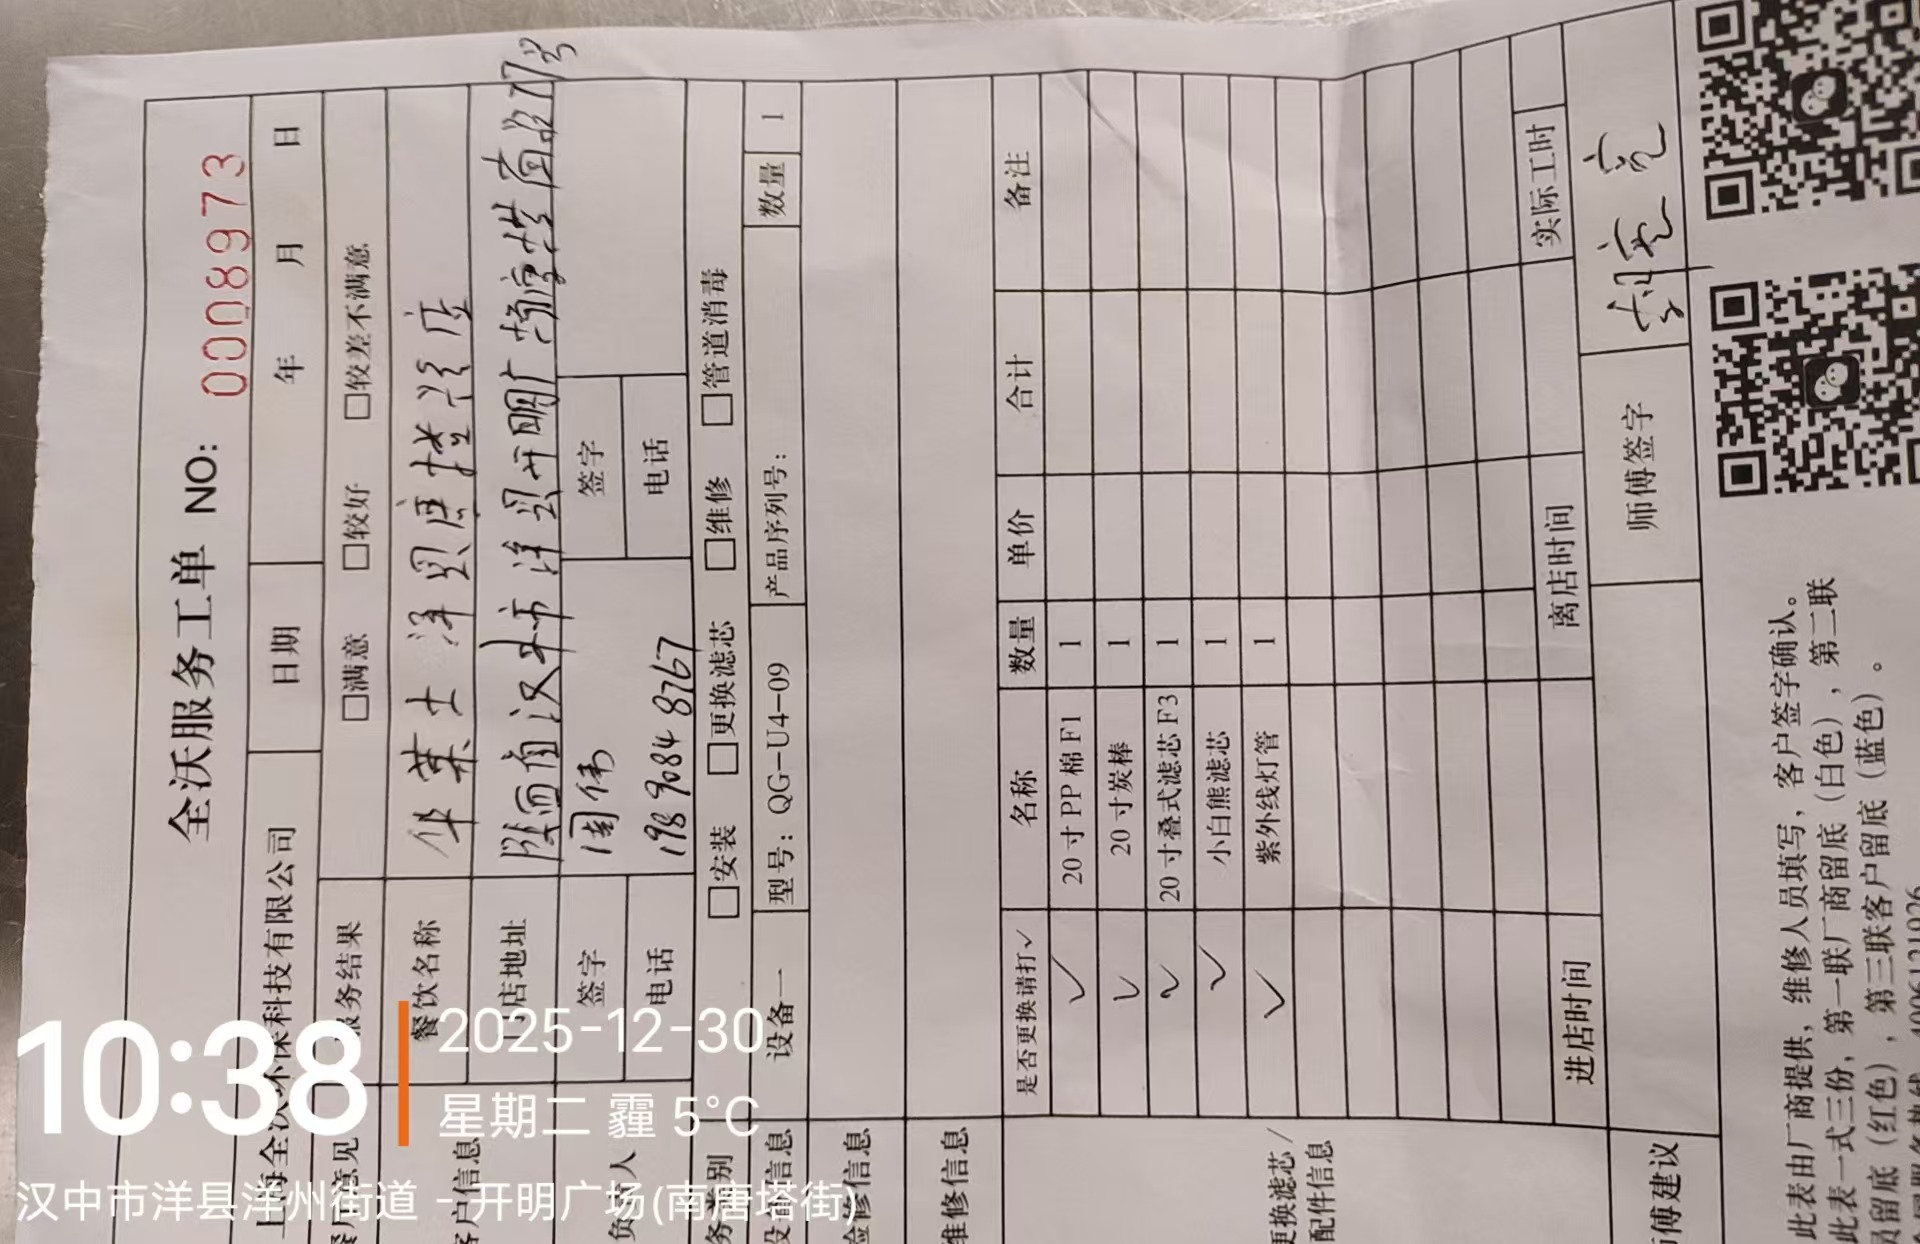 全沃服务工单 NO: 0008973
上海全沃环保科技有限公司 日期 年 月 日
客户意见 服务结果 □满意 □较好 □较差不满意
客户信息 餐饮名称 华莱士洋县唐塔街店
门店地址 陕西省汉中市洋县开明广场唐塔南路17号
负责人 签字 周伟 签字
电话 198 9084 8767 电话
服务类别 □安装 □更换滤芯 □维修 □管道消毒
设备信息 设备一 型号：QG-U4-09 产品序列号： 数量 1
检修信息
维修信息
更换滤芯/配件信息
是否更换请打✓ 名称 数量 单价 合计 备注
✓ 20寸PP棉F1 1
✓ 20寸炭棒 1
✓ 20寸叠式滤芯F3 1
✓ 小白熊滤芯 1
✓ 紫外线灯管 1
进店时间 离店时间 实际工时
师傅建议 师傅签字
此表由厂商提供，维修人员填写，客户签字确认。
此表一式三份，第一联厂商留底（白色），第二联
员留底（红色），第三联客户留底（蓝色）。
4006121026
10:38
2025-12-30
星期二 霾 5°C
汉中市洋县洋州街道 - 开明广场(南唐塔街)